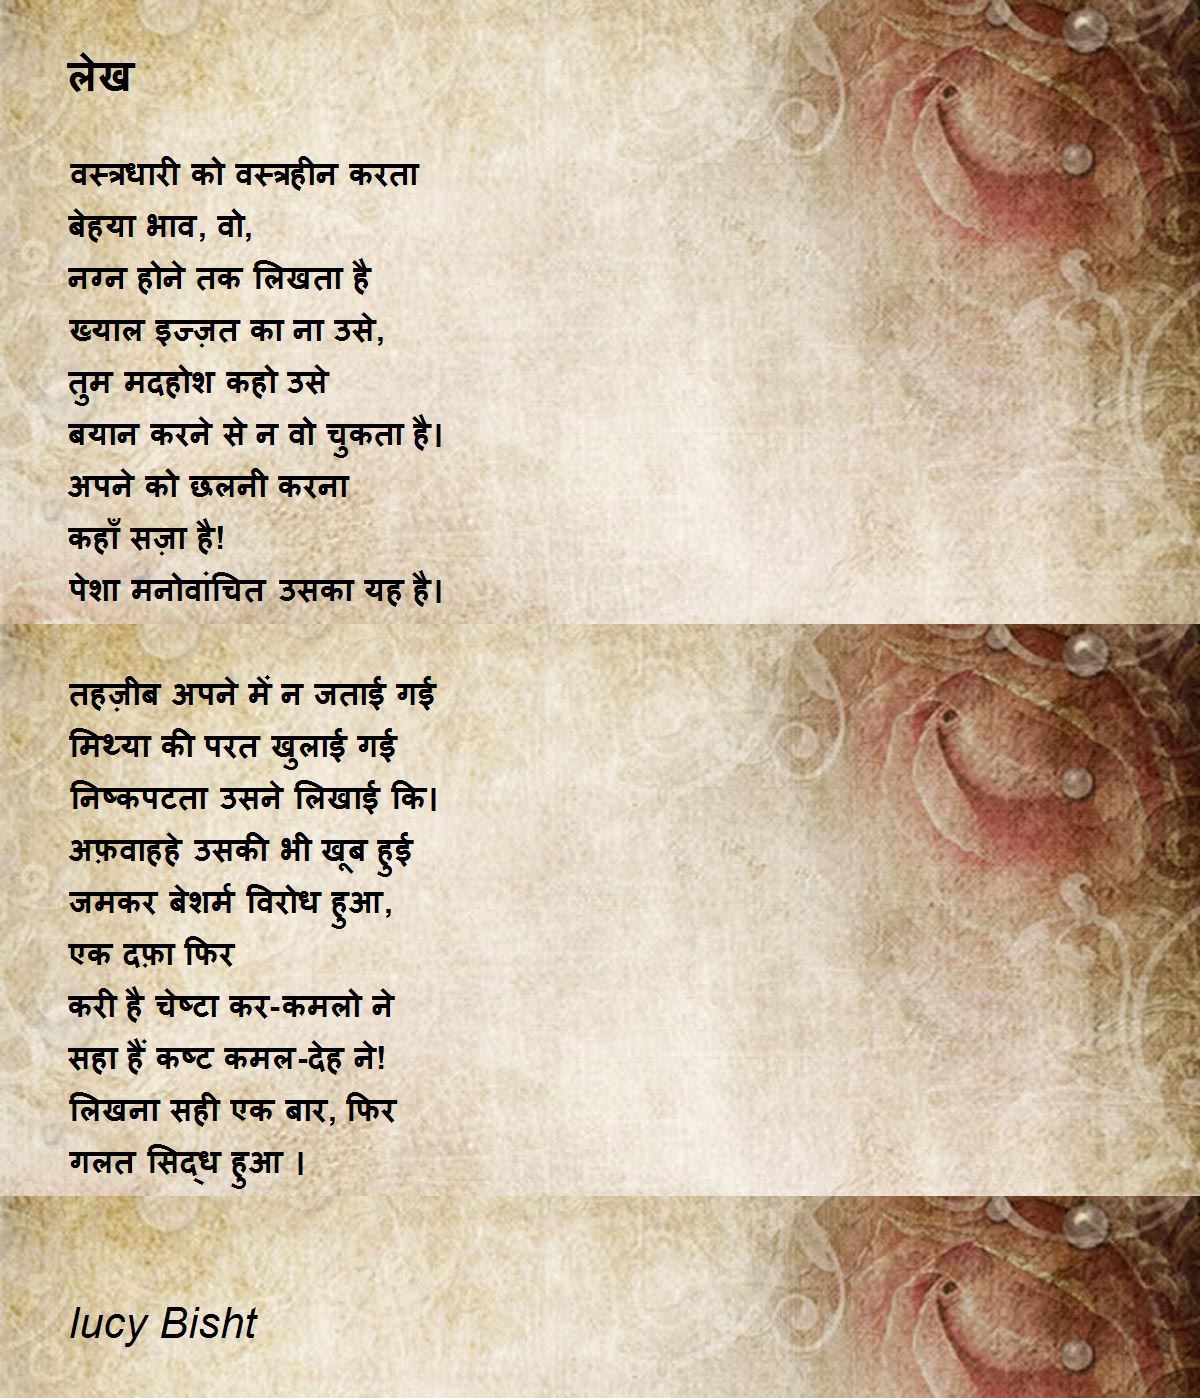 लेख
वस्त्रधारी को वस्त्रहीन करता
बेहया भाव, वो,
नग्न होने तक लिखता है
ख्याल इज्ज़त का ना उसे,
तुम मदहोश कहो उसे
बयान करने से न वो चुकता है।
अपने को छलनी करना
कहाँ सज़ा है!
पेशा मनोवांचित उसका यह है।
तहज़ीब अपने में न जताई गई
मिथ्या की परत खुलाई गई
निष्कपटता उसने लिखाई कि।
अफ़वाहहे उसकी भी खूब हुई
जमकर बेशर्म विरोध हुआ,
एक दफ़ा फिर
करी है चेष्टा कर-कमलो ने
सहा हैं कष्ट कमल-देह ने!
लिखना सही एक बार, फिर
गलत सिद्ध हुआ ।
lucy Bisht